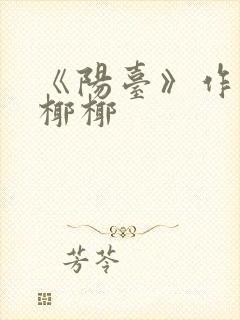 《陽臺》作
椰椰
芳苓